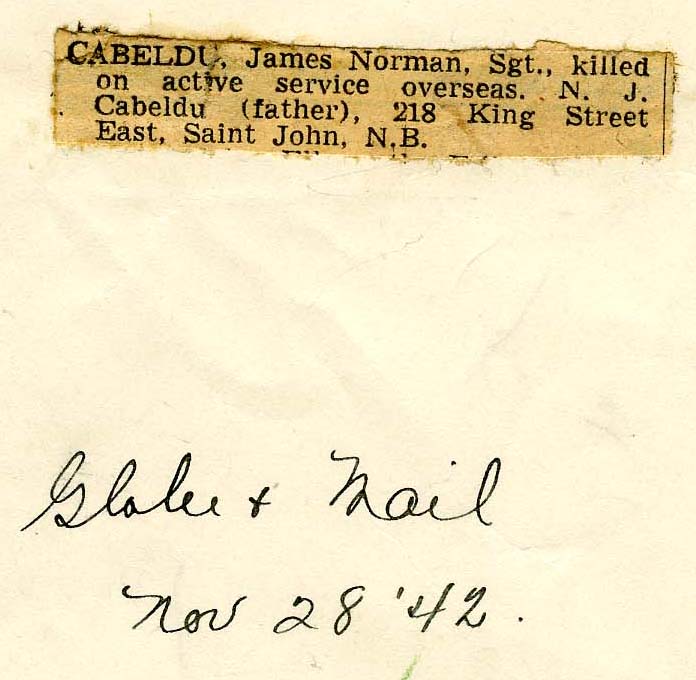 CABELDU, James Norman, Sgt., killed
on active service overseas. N. J.
Cabeldu (father), 218 King Street
East, Saint John, N.B.
Globe + Mail
Nov 28 '42.